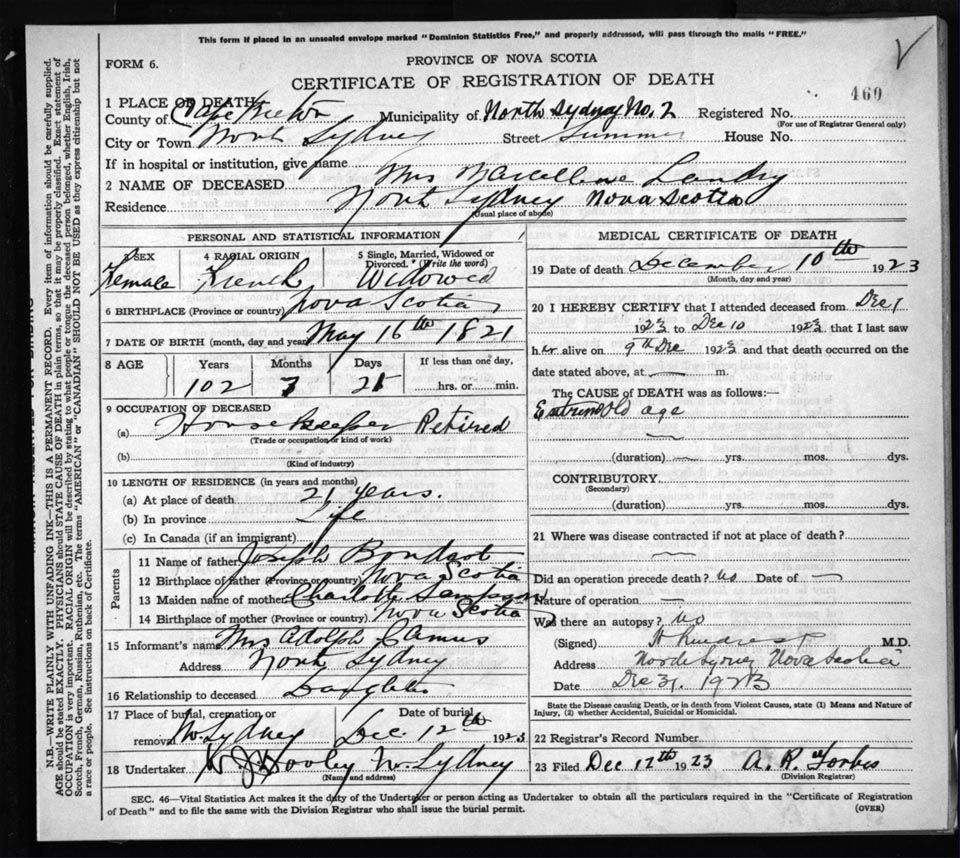 This form if placed in an unsealed envelope marked "Dominion Statistics Free," and properly addressed, will pass through the mails "FREE."
FORM 6.
PROVINCE OF NOVA SCOTIA
CERTIFICATE OF REGISTRATION OF DEATH
469
1 PLACE OF DEATH
County of Cape Breton Municipality of North Sydney No. 2 Registered No.
(For use of Registrar General only)
City or Town North Sydney Street Summer House No.
If in hospital or institution, give name
2 NAME OF DECEASED Mrs Marcelline Landry
Residence North Sydney Nova Scotia
(Usual place of abode)
PERSONAL AND STATISTICAL INFORMATION
3 SEX Female
4 RACIAL ORIGIN French
5 Single, Married, Widowed or Divorced. (Write the word) Widowed
6 BIRTHPLACE (Province or country) Nova Scotia
7 DATE OF BIRTH (month, day and year) May 16th 1821
8 AGE Years Months Days If less than one day,
102 7 25 hrs. or min.
9 OCCUPATION OF DECEASED
(a) Housekeeper Retired
(Trade or occupation or kind of work)
(b)
(Kind of industry)
10 LENGTH OF RESIDENCE (in years and months)
(a) At place of death 21 years.
(b) In province Life
(c) In Canada (if an immigrant)
Parents
11 Name of father Joseph Boudrot
12 Birthplace of father (Province or country) Nova Scotia
13 Maiden name of mother Charlotte Sampson
14 Birthplace of mother (Province or country) Nova Scotia
15 Informant's name Mrs Adolph Camus
Address North Sydney
16 Relationship to deceased Daughter
17 Place of burial, cremation or removal N. Sydney Date of burial Dec 12th 1923
18 Undertaker Dooley N. Sydney
(Name and address)
MEDICAL CERTIFICATE OF DEATH
19 Date of death December 10th 1923
(Month, day and year)
20 I HEREBY CERTIFY that I attended deceased from Dec 1
1923 to Dec 10 1923 that I last saw
her alive on 9th Dec 1923 and that death occurred on the
date stated above, at — m.
The CAUSE OF DEATH was as follows:—
Extreme Old age
(duration) yrs. mos. dys.
CONTRIBUTORY
(Secondary)
(duration) yrs. mos. dys.
21 Where was disease contracted if not at place of death?
Did an operation precede death? no Date of —
Nature of operation —
Was there an autopsy? no
(Signed) M.D.
Address North Sydney Nova Scotia
Date Dec 31. 1923
State the Disease causing Death, or in death from Violent Causes, state (1) Means and Nature of
Injury, (2) whether Accidental, Suicidal or Homicidal.
22 Registrar's Record Number
23 Filed Dec 12th 1923 A. R. Forbes
(Division Registrar)
SEC. 46—Vital Statistics Act makes it the duty of the Undertaker or person acting as Undertaker to obtain all the particulars required in the "Certificate of Registration
of Death" and to file the same with the Division Registrar who shall issue the burial permit. (OVER)
N.B.—WRITE PLAINLY WITH UNFADING INK—THIS IS A PERMANENT RECORD. Every item of information should be carefully supplied.
AGE should be stated EXACTLY. PHYSICIANS should STATE CAUSE OF DEATH in plain terms, so that it may be properly classified. Exact statement of
OCCUPATION is very important. RACIAL ORIGIN will be described by stating to what people or tongue the deceased person belonged, whether English, Irish,
Scotch, French, German, Russian, Ruthenian, etc. The terms "AMERICAN" or "CANADIAN" SHOULD NOT BE USED as they express citizenship but not
a race or people. See instructions on back of Certificate.